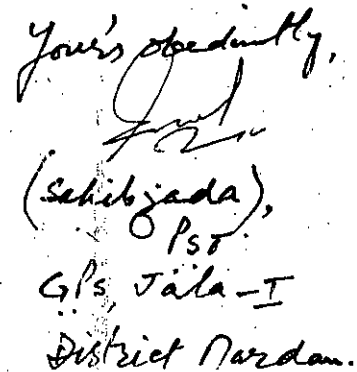 Your's obediently,
(Sahibzada),
PST
GPS, Jala-I
District Mardan.